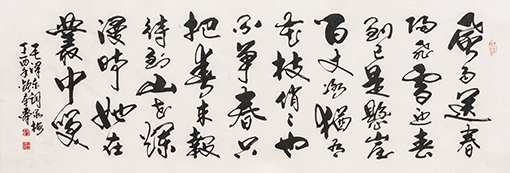 風雨送春
歸飛雪迎春
到已是懸崖
百丈冰猶有
花枝俏々也
不爭春只
把春來報
待到山花爛
漫時她在
叢中笑
毛澤東詞詠梅
丁酉年